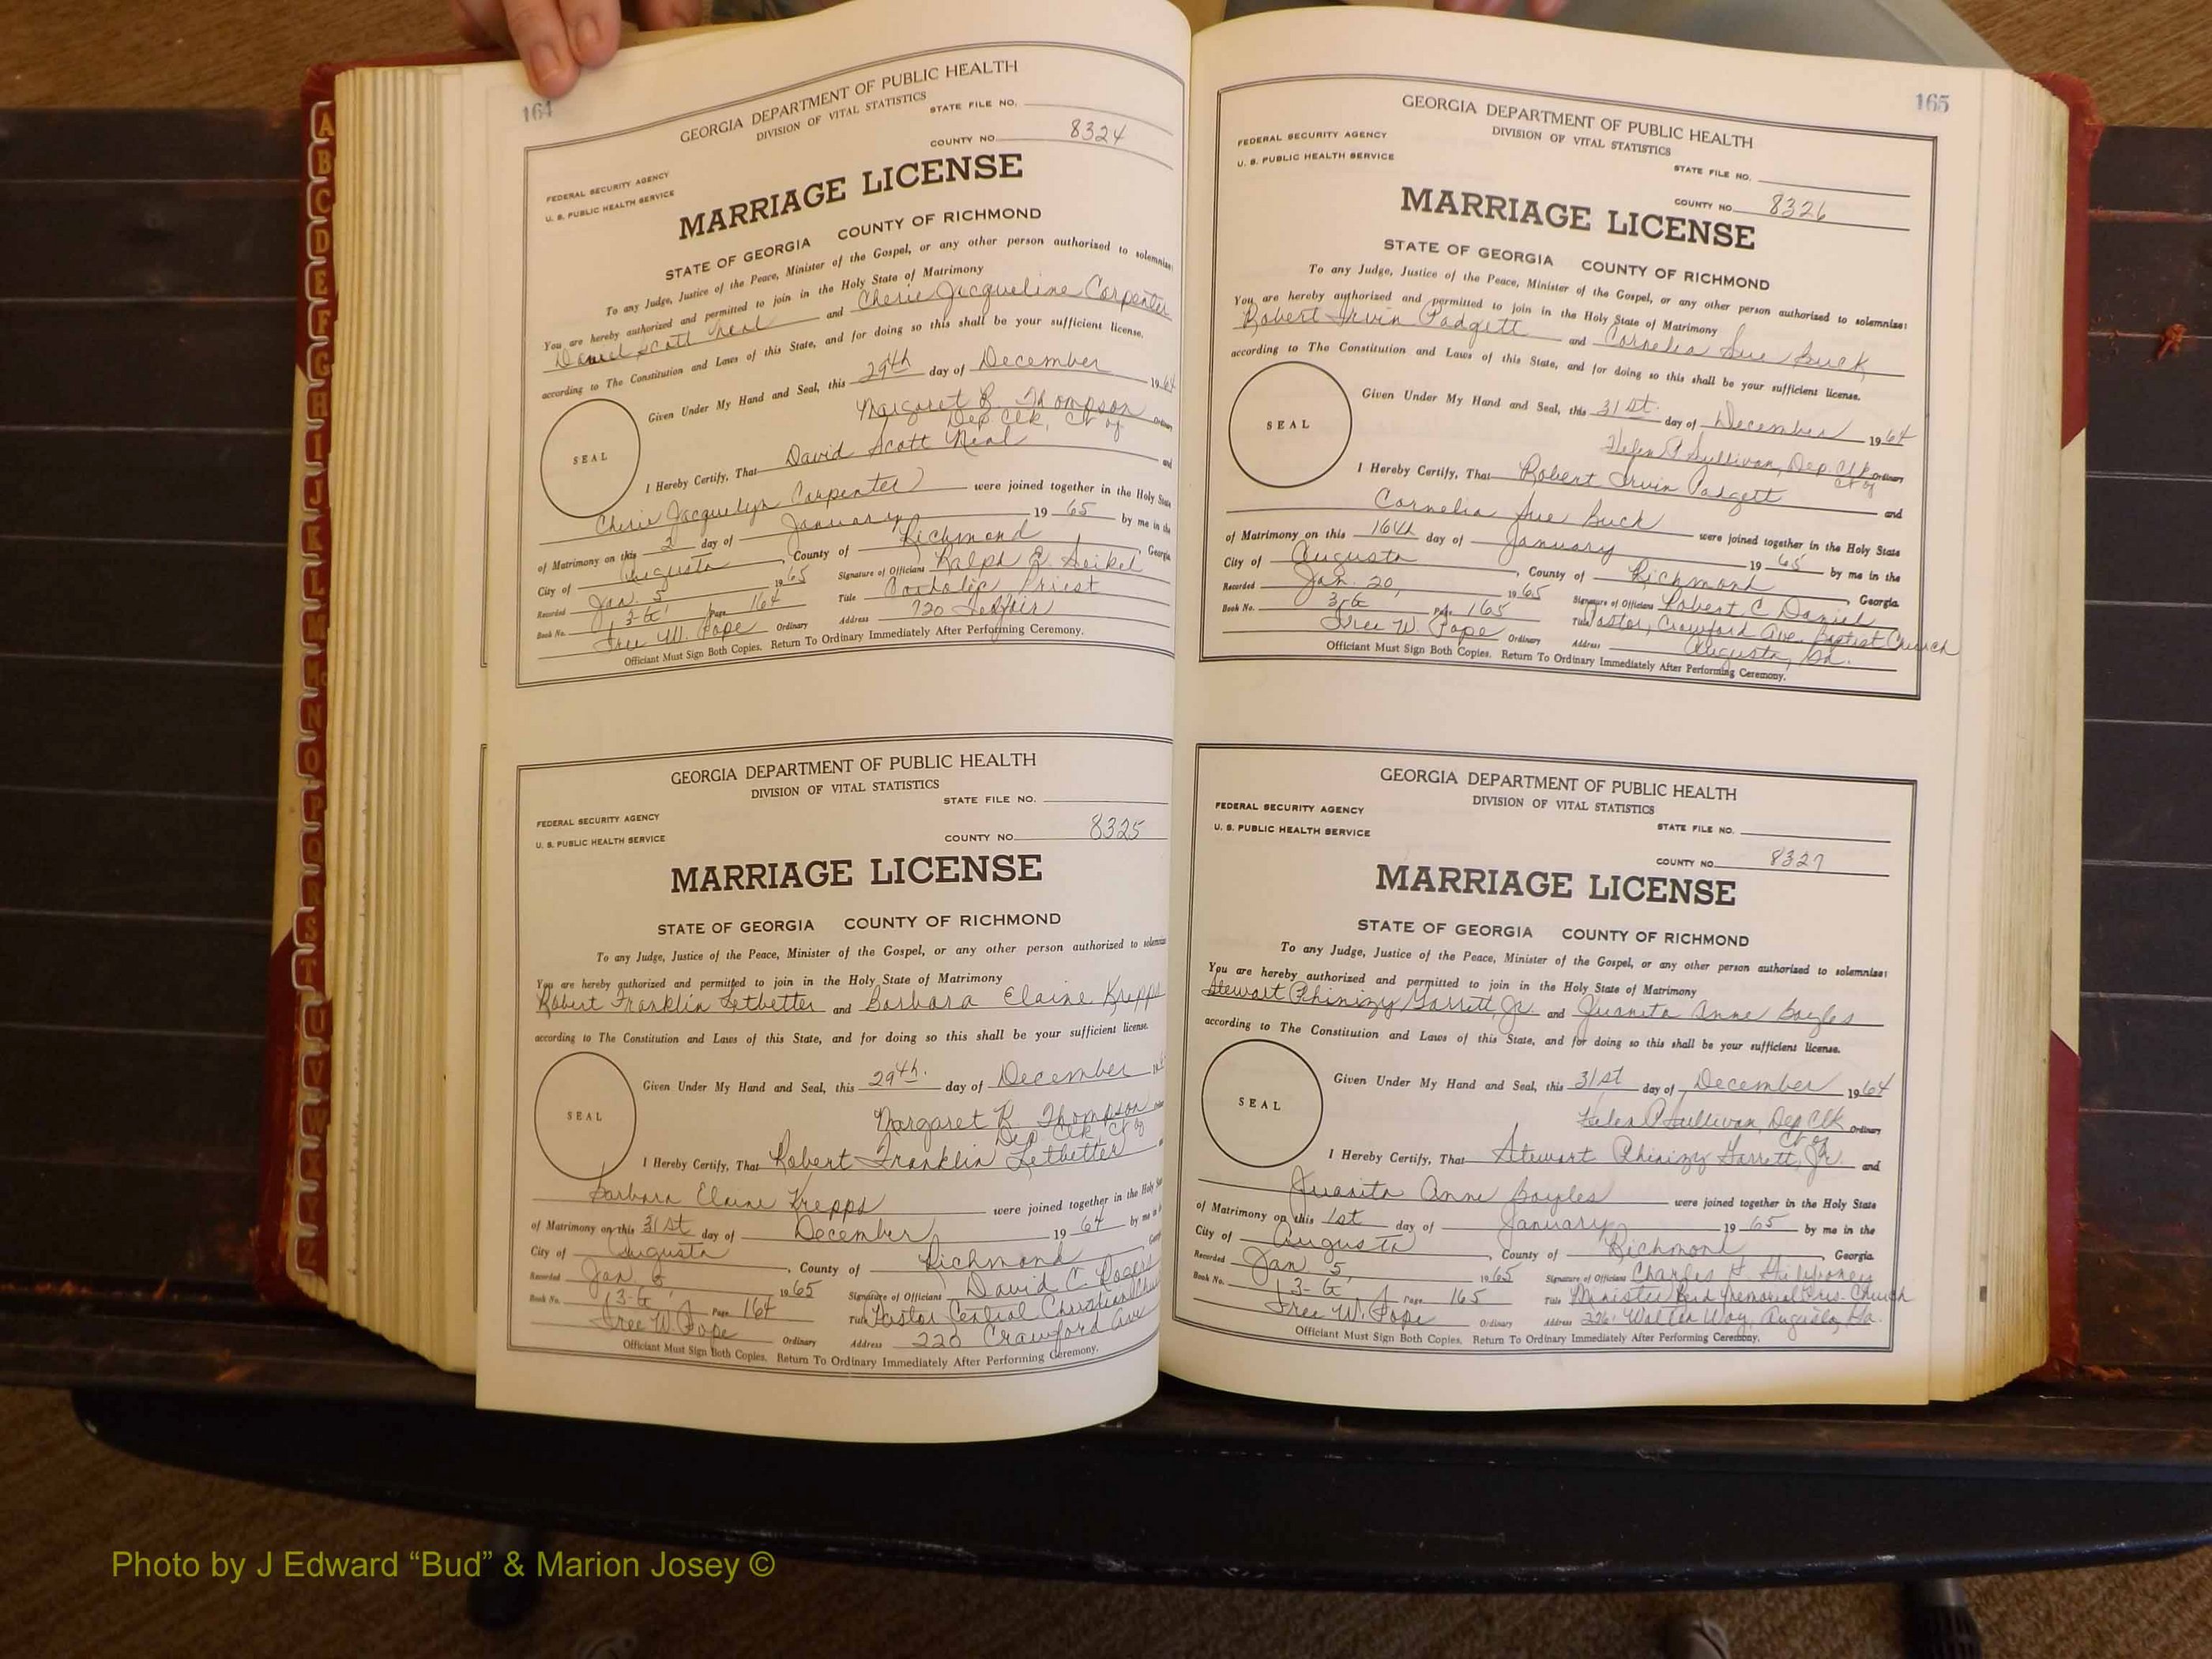 164
GEORGIA DEPARTMENT OF PUBLIC HEALTH
DIVISION OF VITAL STATISTICS
STATE FILE NO.
FEDERAL SECURITY AGENCY
U. S. PUBLIC HEALTH SERVICE
COUNTY NO. 8324
MARRIAGE LICENSE
STATE OF GEORGIA COUNTY OF RICHMOND
To any Judge, Justice of the Peace, Minister of the Gospel, or any other person authorized to solemnize:
You are hereby authorized and permitted to join in the Holy State of Matrimony
Daniel Scott Neal and Cherie Jacqueline Carpenter
according to The Constitution and Laws of this State, and for doing so this shall be your sufficient license.
Given Under My Hand and Seal, this 29th day of December 1964
SEAL
Margaret B. Thompson Ordinary
Dep Clk, Ct of
I Hereby Certify, That David Scott Neal and
Cherie Jacquelyn Carpenter were joined together in the Holy State
of Matrimony on this 2 day of January 19 65 by me in the
City of Augusta, County of Richmond, Georgia
Recorded Jan. 5 1965 Signature of Officiant Ralph E. Seikel
Book No. 13-G Page 164 Title Catholic Priest
Free W. Pope Ordinary Address 720 Telfair
Officiant Must Sign Both Copies. Return To Ordinary Immediately After Performing Ceremony.
GEORGIA DEPARTMENT OF PUBLIC HEALTH
DIVISION OF VITAL STATISTICS
STATE FILE NO.
FEDERAL SECURITY AGENCY
U. S. PUBLIC HEALTH SERVICE
COUNTY NO. 8325
MARRIAGE LICENSE
STATE OF GEORGIA COUNTY OF RICHMOND
To any Judge, Justice of the Peace, Minister of the Gospel, or any other person authorized to solemnize
You are hereby authorized and permitted to join in the Holy State of Matrimony
Robert Franklin Letbetter and Barbara Elaine Krepps
according to The Constitution and Laws of this State, and for doing so this shall be your sufficient license.
Given Under My Hand and Seal, this 29th. day of December 19
SEAL
Margaret B. Thompson
Dep Clk, Ct of
I Hereby Certify, That Robert Franklin Letbetter
Barbara Elaine Krepps were joined together in the Holy
of Matrimony on this 31st day of December 19 64 by me in
City of Augusta, County of Richmond
Recorded Jan 5, 1965 Signature of Officiant David C. Rogers
Book No. 13-G Page 164 Title Pastor Central Christian Church
Free W. Pope Ordinary Address 220 Crawford Ave
Officiant Must Sign Both Copies. Return To Ordinary Immediately After Performing Ceremony.
165
GEORGIA DEPARTMENT OF PUBLIC HEALTH
DIVISION OF VITAL STATISTICS
FEDERAL SECURITY AGENCY
U. S. PUBLIC HEALTH SERVICE
STATE FILE NO.
COUNTY NO. 8326
MARRIAGE LICENSE
STATE OF GEORGIA COUNTY OF RICHMOND
To any Judge, Justice of the Peace, Minister of the Gospel, or any other person authorized to solemnize:
You are hereby authorized and permitted to join in the Holy State of Matrimony
Robert Irvin Padgett and Cornelia Sue Buck
according to The Constitution and Laws of this State, and for doing so this shall be your sufficient license.
Given Under My Hand and Seal, this 31st. day of December 1964
SEAL
Helen P Sullivan, Dep Clk Ordinary
Ct of
I Hereby Certify, That Robert Irvin Padgett and
Cornelia Sue Buck were joined together in the Holy State
of Matrimony on this 16th day of January 19 65 by me in the
City of Augusta, County of Richmond, Georgia
Recorded Jan. 20, 1965 Signature of Officiant Robert C Daniel
Book No. 3-G Page 165 Title Pastor, Crawford Ave. Baptist Church
Free W. Pope Ordinary Address Augusta, Ga.
Officiant Must Sign Both Copies. Return To Ordinary Immediately After Performing Ceremony.
GEORGIA DEPARTMENT OF PUBLIC HEALTH
DIVISION OF VITAL STATISTICS
FEDERAL SECURITY AGENCY
U. S. PUBLIC HEALTH SERVICE
STATE FILE NO.
COUNTY NO. 8327
MARRIAGE LICENSE
STATE OF GEORGIA COUNTY OF RICHMOND
To any Judge, Justice of the Peace, Minister of the Gospel, or any other person authorized to solemnize:
You are hereby authorized and permitted to join in the Holy State of Matrimony
Stewart Phinizy Garrett, Jr. and Juanita Anne Bayles
according to The Constitution and Laws of this State, and for doing so this shall be your sufficient license.
Given Under My Hand and Seal, this 31st day of December 1964
SEAL
Helen P Sullivan, Dep Clk Ordinary
Ct of
I Hereby Certify, That Stewart Phinizy Garrett, Jr. and
Juanita Anne Bayles were joined together in the Holy State
of Matrimony on this 1st day of January 19 65 by me in the
City of Augusta, County of Richmond, Georgia
Recorded Jan 5, 1965 Signature of Officiant Charles H
Book No. 13-G Page 165 Title Minister Reid Memorial Pres. Church
Free W. Pope Ordinary Address Walton Way, Augusta, Ga.
Officiant Must Sign Both Copies. Return To Ordinary Immediately After Performing Ceremony.
A
B
C
D
E
F
G
H
I
J
K
L
M
Mc
N
O
P
Q
R
S
T
U
V
W
X
Y
Z
Photo by J Edward “Bud” & Marion Josey ©